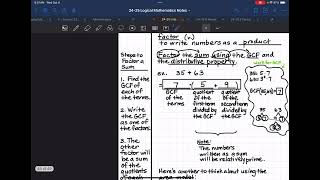 24-25 Logical Mathematics Notes
factor (v.)
to write numbors as a product
Factor the sum using the GCF
and the distributive property.
Steps to
Factor a
Sum
1. Find the
GCF of
each of the
terms.
2. Write
the GCF
as one of
the factors.
3. The
other
factor will
be a sum
of the
quotients
of each
ex. 35 + 63
7 ( 5 + 9 )
GCF
of the
terms
quotient
of the
first term
divided
by the
GCF
quotient
of the
second term
divided by
the GCF
35 = 5·7
GCF(35,63) = 7
35 63
Note:
The numbers
written as a sum
will be relatively prime.
Here's another to think about using the
area model: